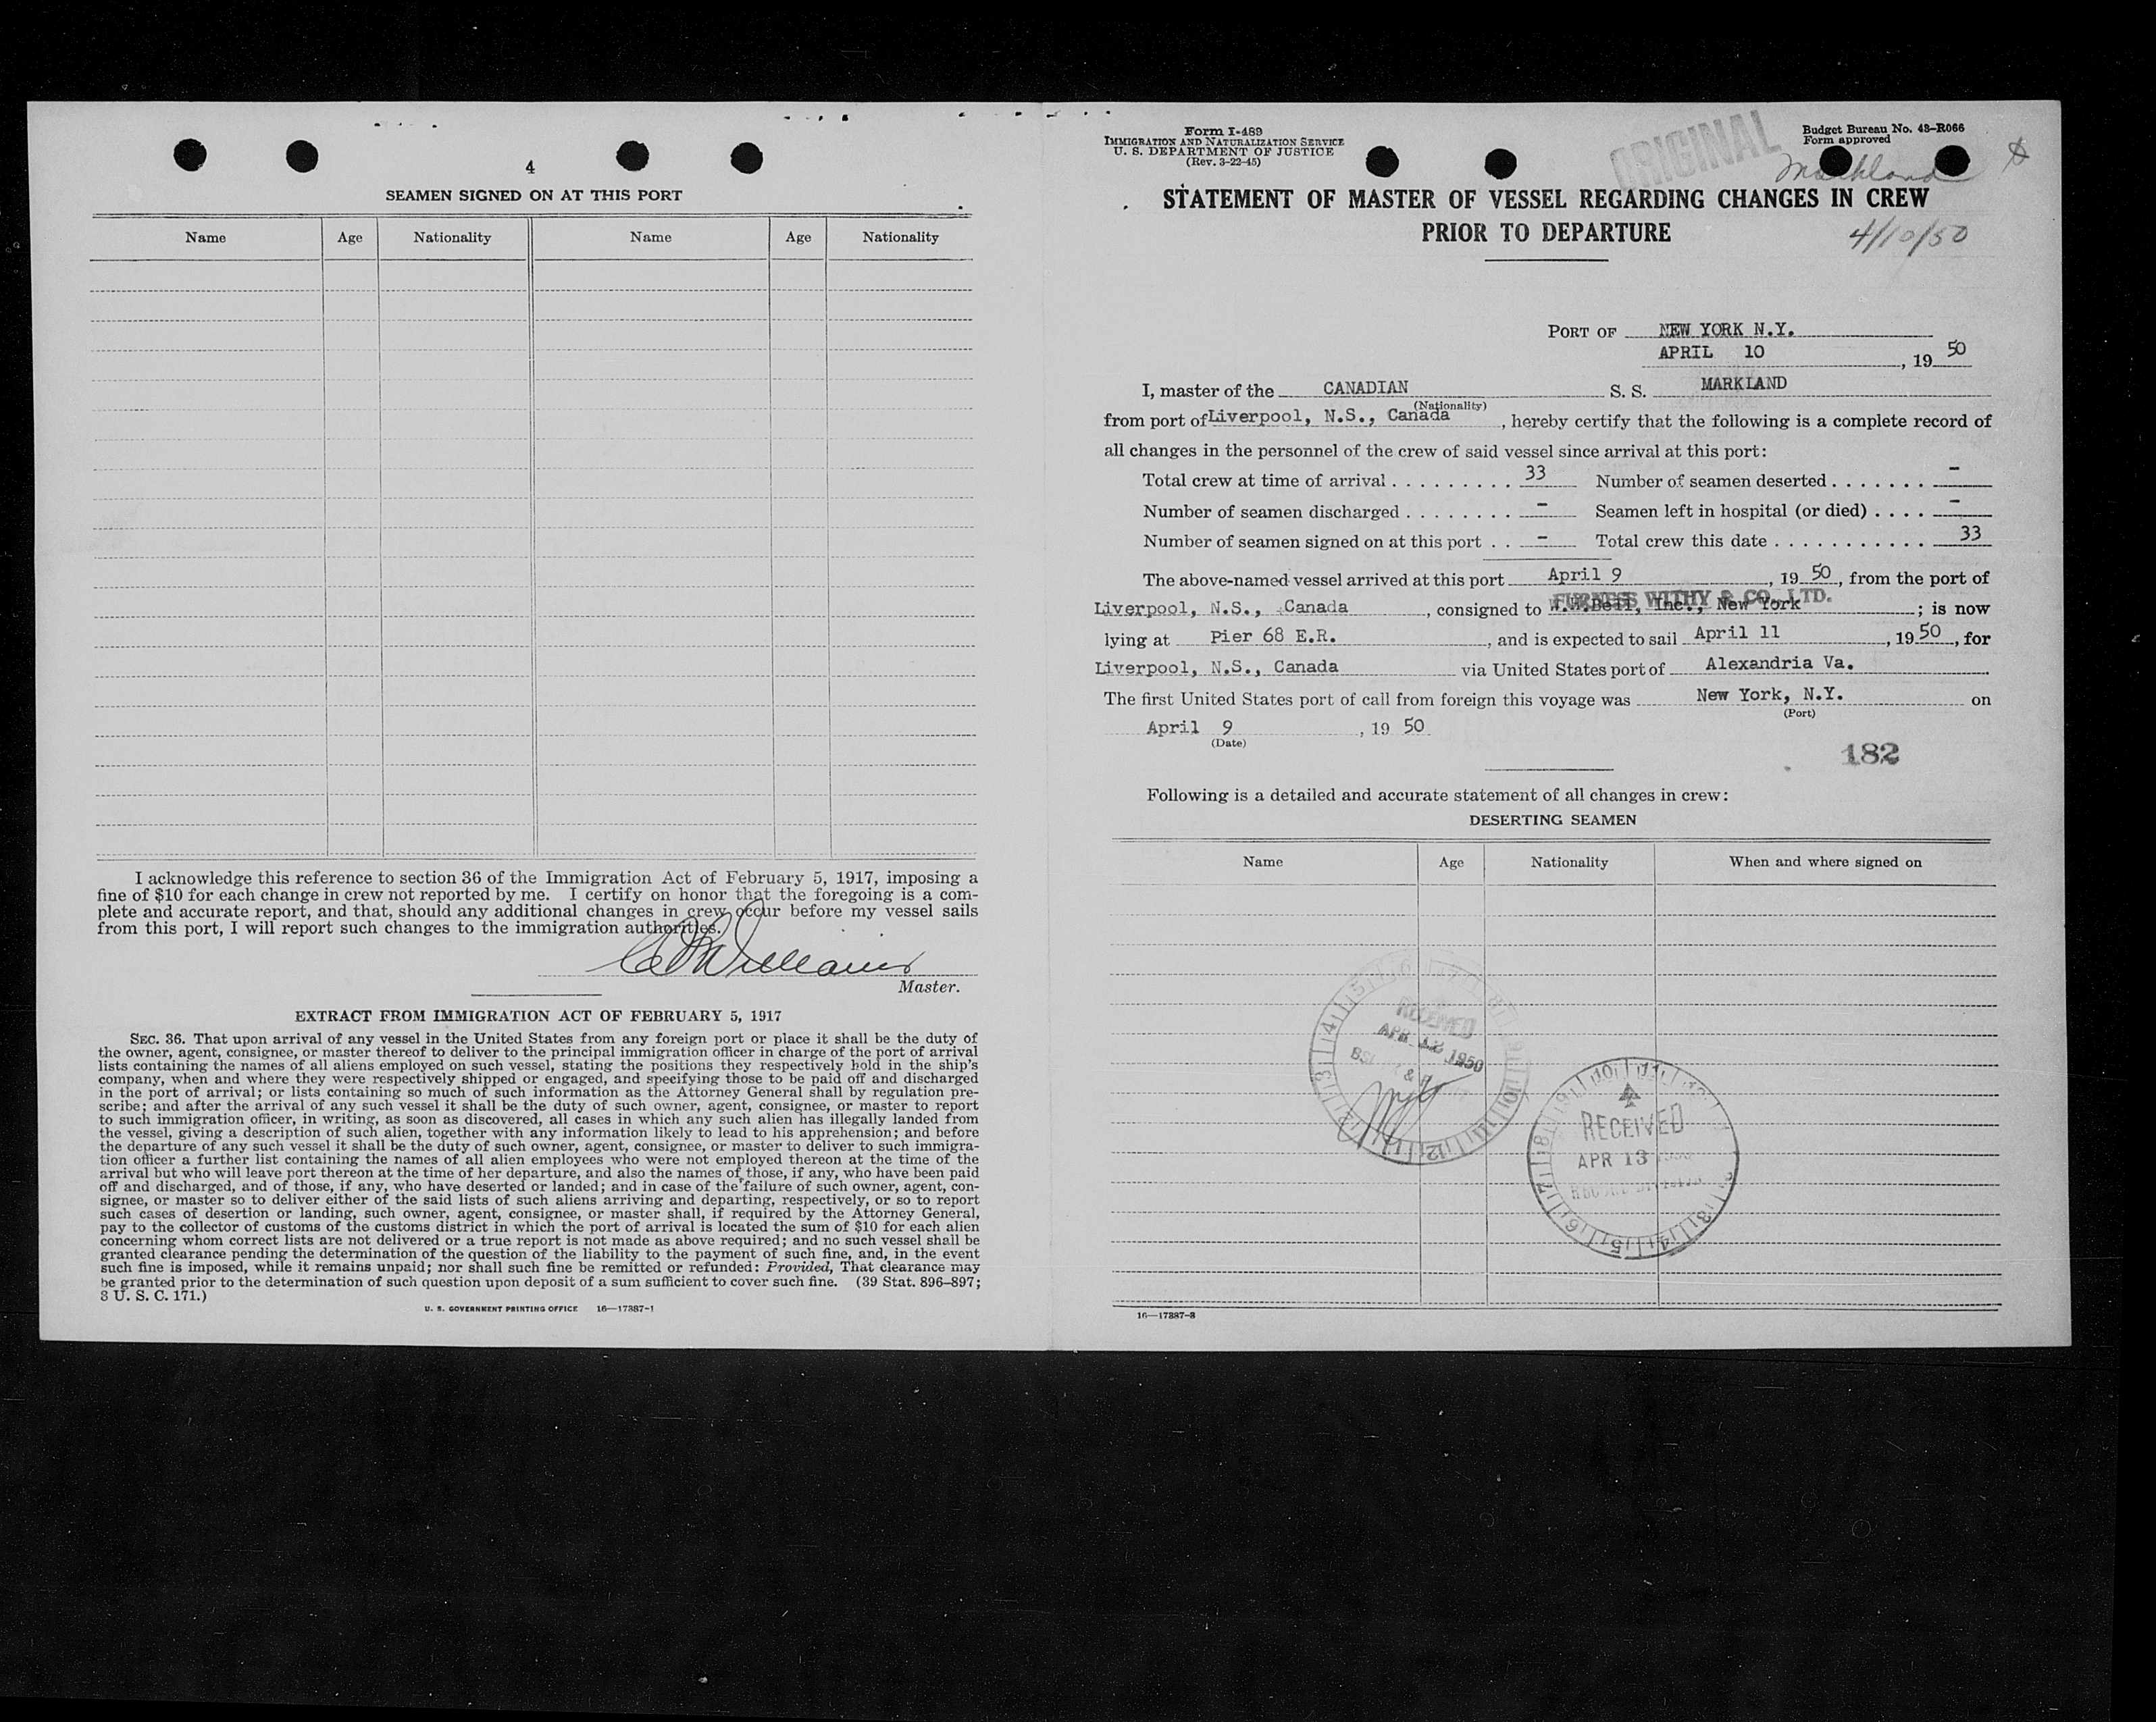 4
SEAMEN SIGNED ON AT THIS PORT
Name Age Nationality Name Age Nationality
I acknowledge this reference to section 36 of the Immigration Act of February 5, 1917, imposing a
fine of $10 for each change in crew not reported by me. I certify on honor that the foregoing is a com-
plete and accurate report, and that, should any additional changes in crew occur before my vessel sails
from this port, I will report such changes to the immigration authorities.
Williams
Master.
EXTRACT FROM IMMIGRATION ACT OF FEBRUARY 5, 1917
SEC. 36. That upon arrival of any vessel in the United States from any foreign port or place it shall be the duty of
the owner, agent, consignee, or master thereof to deliver to the principal immigration officer in charge of the port of arrival
lists containing the names of all aliens employed on such vessel, stating the positions they respectively hold in the ship's
company, when and where they were respectively shipped or engaged, and specifying those to be paid off and discharged
in the port of arrival; or lists containing so much of such information as the Attorney General shall by regulation pre-
scribe; and after the arrival of any such vessel it shall be the duty of such owner, agent, consignee, or master to report
to such immigration officer, in writing, as soon as discovered, all cases in which any such alien has illegally landed from
the vessel, giving a description of such alien, together with any information likely to lead to his apprehension; and before
the departure of any such vessel it shall be the duty of such owner, agent, consignee, or master to deliver to such immigra-
tion officer a further list containing the names of all alien employees who were not employed thereon at the time of the
arrival but who will leave port thereon at the time of her departure, and also the names of those, if any, who have been paid
off and discharged, and of those, if any, who have deserted or landed; and in case of the failure of such owner, agent, con-
signee, or master so to deliver either of the said lists of such aliens arriving and departing, respectively, or so to report
such cases of desertion or landing, such owner, agent, consignee, or master shall, if required by the Attorney General,
pay to the collector of customs of the customs district in which the port of arrival is located the sum of $10 for each alien
concerning whom correct lists are not delivered or a true report is not made as above required; and no such vessel shall be
granted clearance pending the determination of the question of the liability to the payment of such fine, and, in the event
such fine is imposed, while it remains unpaid; nor shall such fine be remitted or refunded: Provided, That clearance may
be granted prior to the determination of such question upon deposit of a sum sufficient to cover such fine. (39 Stat. 896–897;
8 U. S. C. 171.)
U. S. GOVERNMENT PRINTING OFFICE 16—17387-1
Form I-489
IMMIGRATION AND NATURALIZATION SERVICE
U. S. DEPARTMENT OF JUSTICE
(Rev. 3-22-45)
ORIGINAL
Budget Bureau No. 43-R066
Form approved
Markland
STATEMENT OF MASTER OF VESSEL REGARDING CHANGES IN CREW
PRIOR TO DEPARTURE
4/10/50
PORT OF NEW YORK N.Y.
APRIL 10, 19 50
I, master of the CANADIAN S. S. MARKLAND
(Nationality)
from port of Liverpool, N.S., Canada, hereby certify that the following is a complete record of
all changes in the personnel of the crew of said vessel since arrival at this port:
Total crew at time of arrival . . . . . . . . . 33 Number of seamen deserted . . . . . . . -
Number of seamen discharged . . . . . . . . - Seamen left in hospital (or died) . . . . -
Number of seamen signed on at this port . . - Total crew this date . . . . . . . . . . . . 33
The above-named vessel arrived at this port April 9, 19 50, from the port of
Liverpool, N.S., Canada, consigned to W.W.Bell, Inc., New York ; is now
FURNESS WITHY & CO. LTD.
lying at Pier 68 E.R., and is expected to sail April 11, 19 50, for
Liverpool, N.S., Canada via United States port of Alexandria Va.
The first United States port of call from foreign this voyage was New York, N.Y. on
(Port)
April 9, 19 50
(Date)
182
Following is a detailed and accurate statement of all changes in crew:
DESERTING SEAMEN
Name Age Nationality When and where signed on
RECEIVED
APR 12 1950
RECEIVED
APR 13
16—17387-3